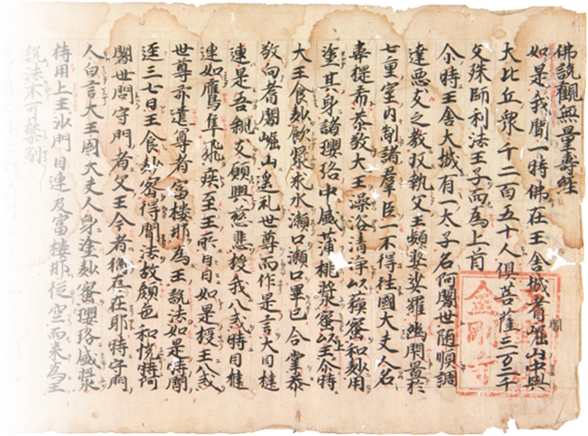 佛説觀無量壽經
如是我聞一時佛在王舍城耆崛山中與
大比丘衆千二百五十人俱菩薩三万二千
文殊師利法王子而為上首
尒時王舍大城有一太子名阿闍世随順調
達惡友之教収執父王頻婆娑羅幽閇置於
七重室内制諸羣臣一不得往國大夫人名
韋提希恭敬大王澡浴清淨以蘇蜜和麨用
塗其身諸璎珞中盛蒲桃漿蜜以王尒時
大王食麨飲漿求水漱口漱口畢已合掌恭
敬向耆闍崛山遥礼世尊而作是言大目揵
連是吾親友願興慈悲授我八戒時目揵
連如鷹隼飛疾至王所日日如是授王八戒
世尊亦遣尊者富楼那為王説法如是時間
逕三七日王食麨蜜得聞法故顔色和悦時阿
闍世問守門者父王今者猶在在耶時守門
人白言大王國大夫人身塗麨蜜璎珞盛漿
持用上王沙門目連及富楼那從空而来為王
説法不可禁制
金剛寺